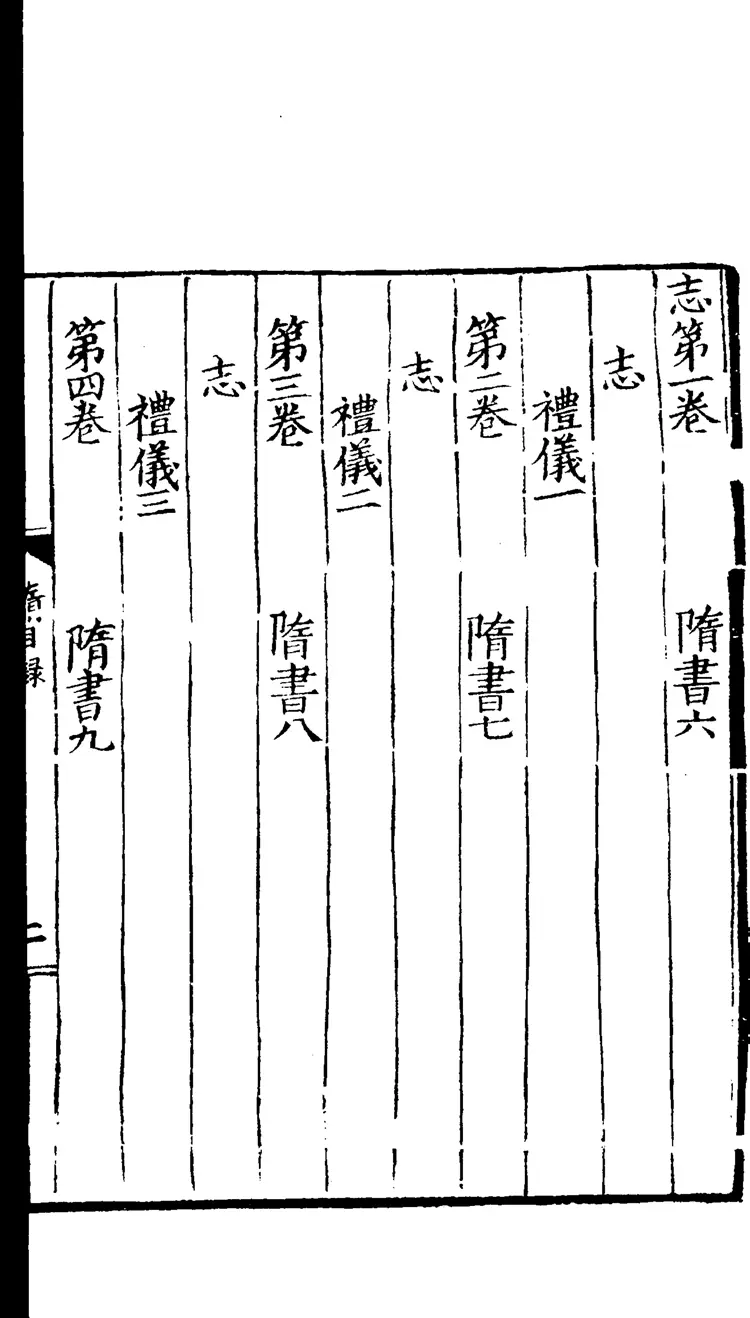 志第一卷 隋書六
志
禮儀一
第二卷 隋書七
志
禮儀二
第三卷 隋書八
志
禮儀三
第四卷 隋書九
隋目録
二